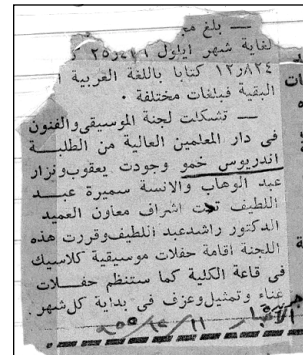 — بلغ مج
لغاية شهر ايلول
١٢٫٨٢٤ كتابا باللغة العربية
البقية فبلغات مختلفة ٠
— تشكلت لجنة الموسيقى والفنون
فى دار المعلمين العالية من الطلبة
اندريوس خمو وجودت يعقوب ونزار
عبد الوهاب والانسة سميرة عبد
اللطيف تحت اشراف معاون العميد
الدكتور راشد عبد اللطيف وقررت هذه
اللجنة اقامة حفلات موسيقية كلاسيك
فى قاعة الكلية كما ستنظم حفلات
غناء وتمثيل وعزف فى بداية كل شهر